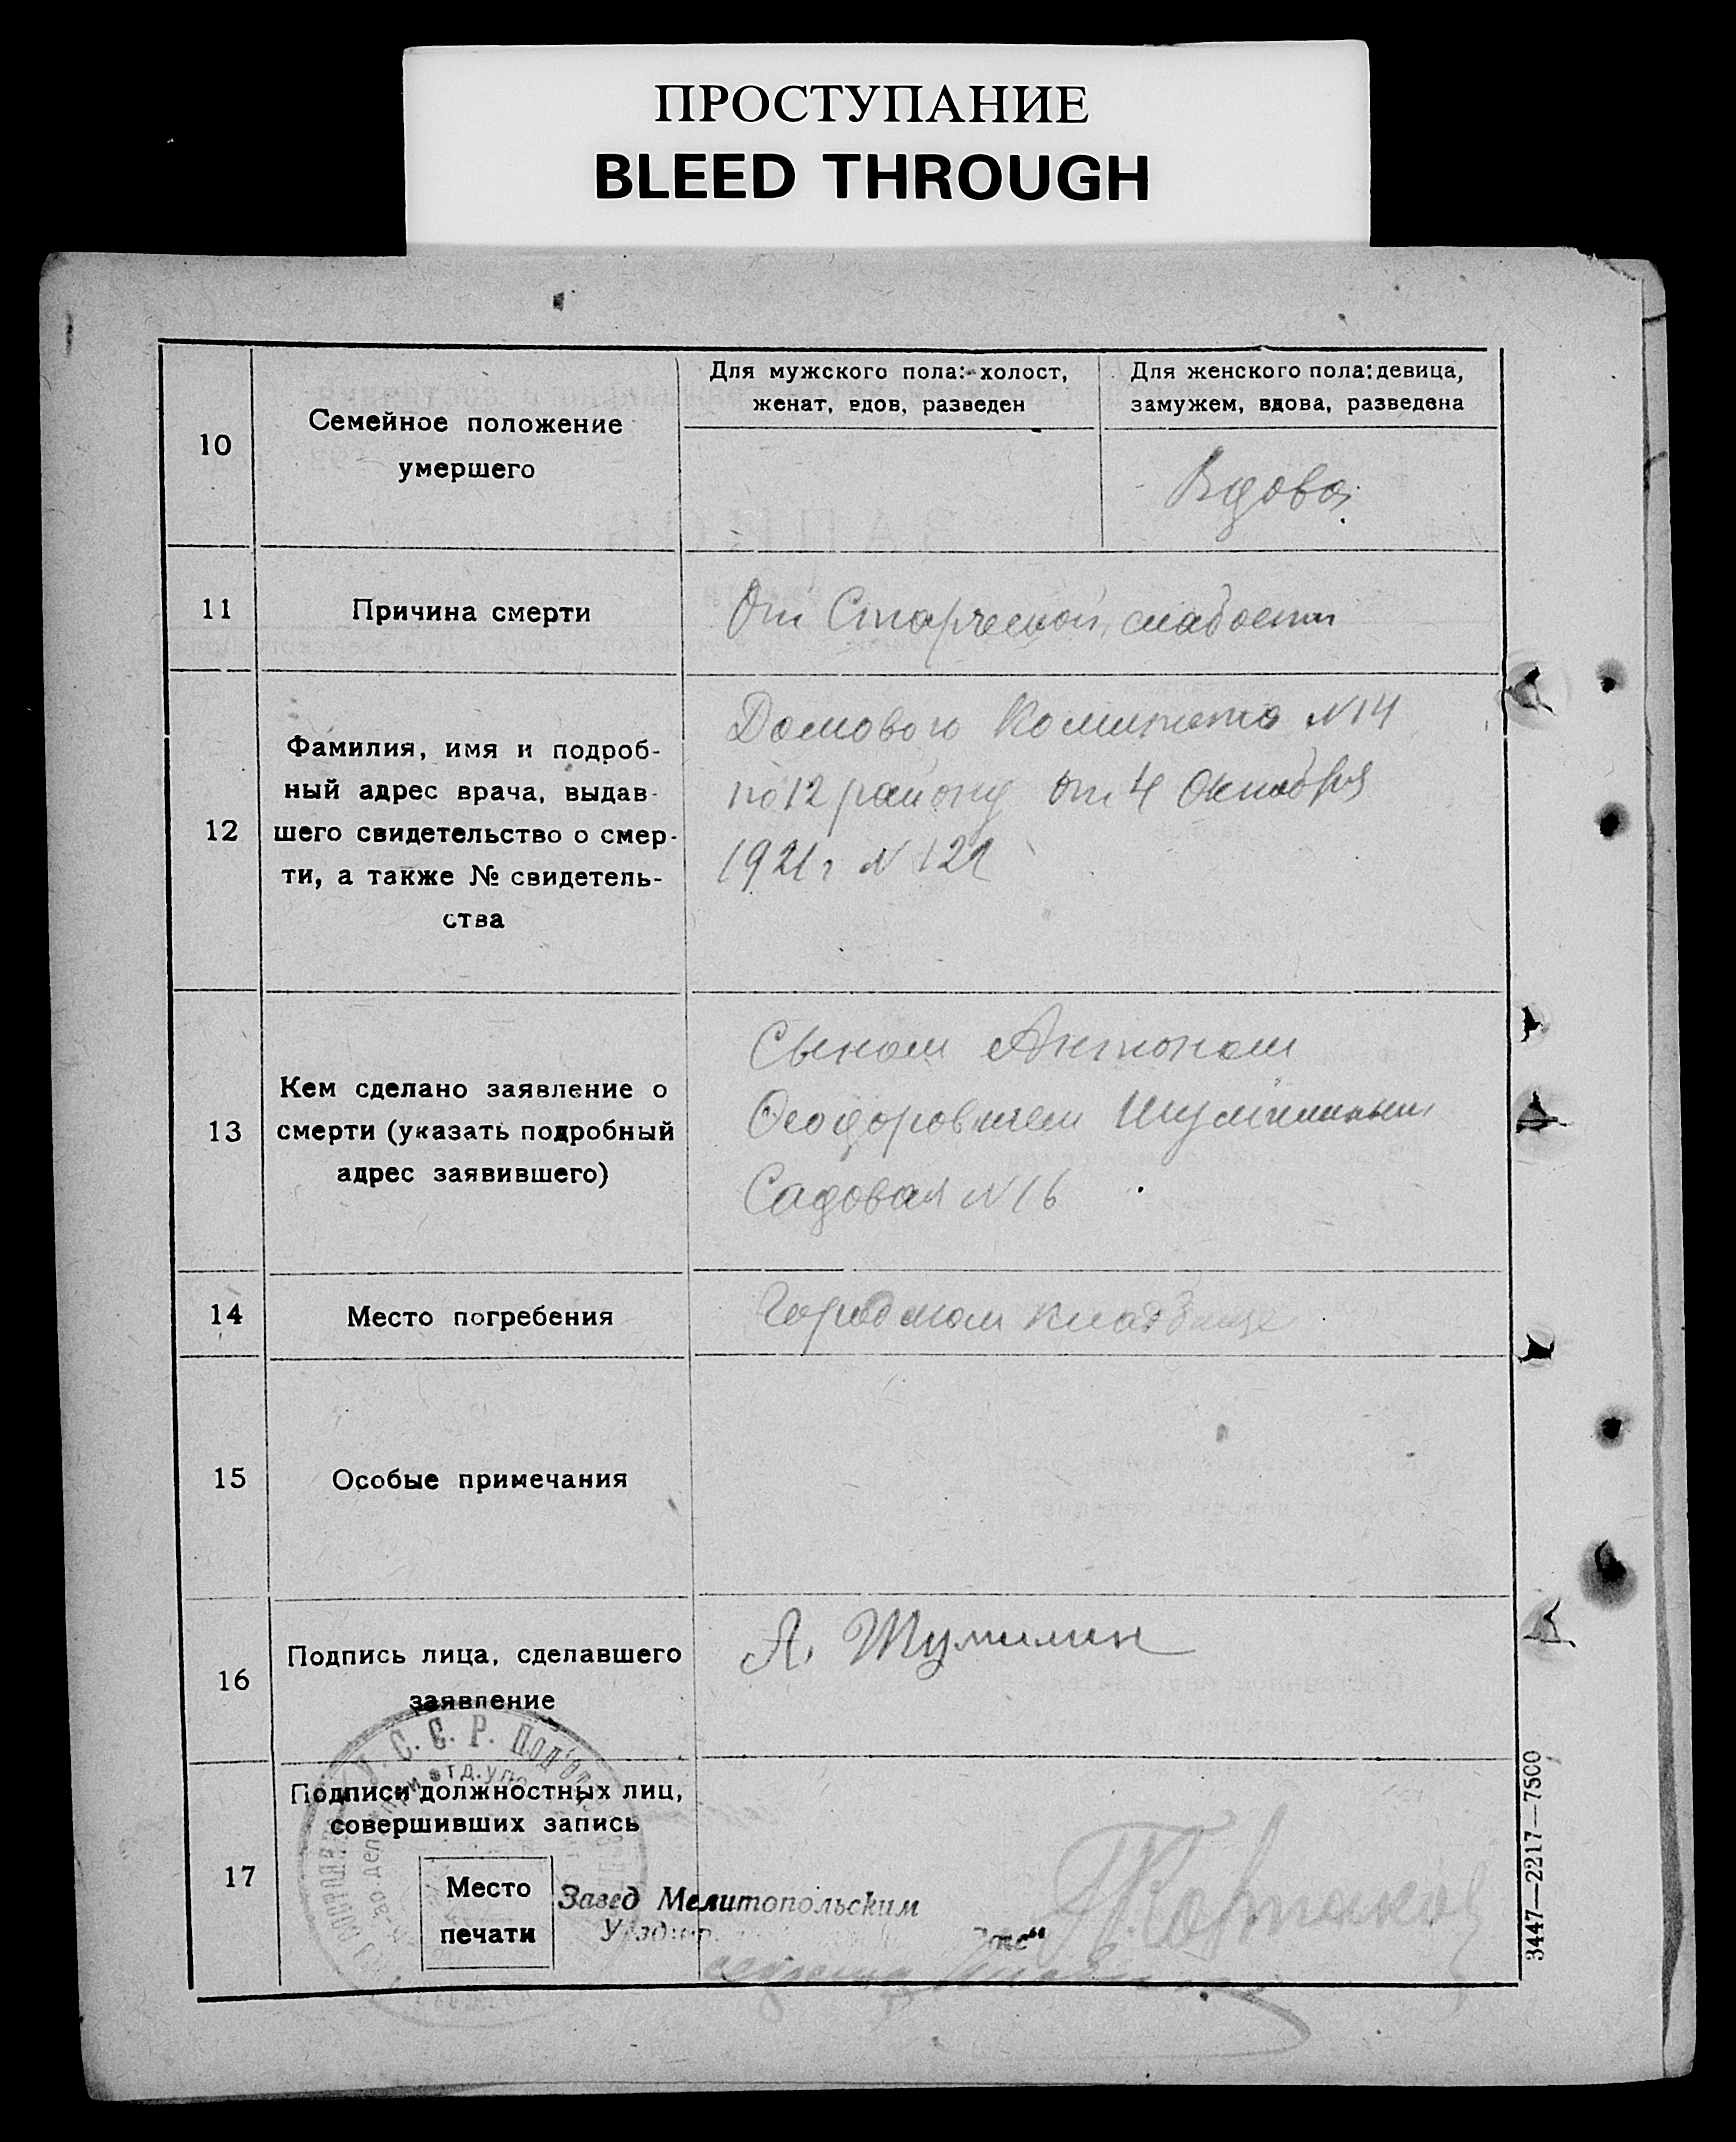 ПРОСТУПАНИЕ
BLEED THROUGH
10
Семейное положение
умершего
Для мужского пола: холост,
женат, вдов, разведен
Для женского пола: девица,
замужем, вдова, разведена
Вдова
11
Причина смерти
От Старческой слабости
12
Фамилия, имя и подроб-
ный адрес врача, выдав-
шего свидетельство о смер-
ти, а также № свидетель-
ства
Домового Комитета N14
по 12 району от 4 Октября
1921 г N 121
13
Кем сделано заявление о
смерти (указать подробный
адрес заявившего)
Сыном Антоном
Феодоровичем Шумилиным
Садовая N16
14
Место погребения
Городском кладбище
15
Особые примечания
16
Подпись лица, сделавшего
заявление
А. Шумилин
17
Подписи должностных лиц,
совершивших запись
Место
печати
Завед Мелитопольским
С. С. Р. Под'от
отд. упр
3447—2217—7500